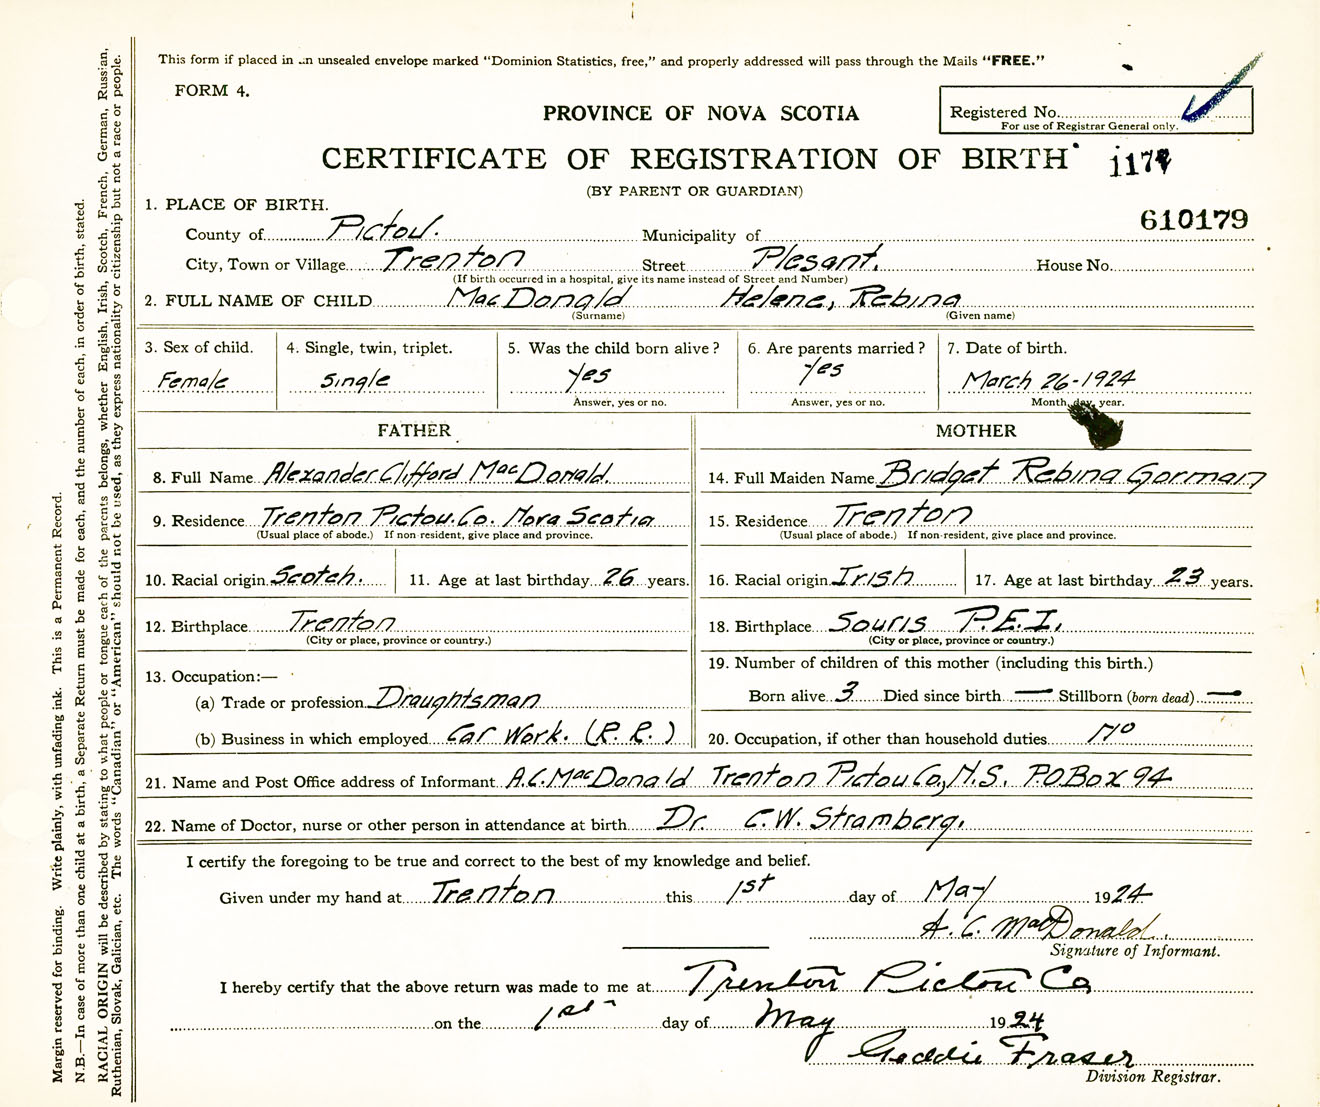 This form if placed in an unsealed envelope marked "Dominion Statistics, free," and properly addressed will pass through the Mails "FREE."
FORM 4.
PROVINCE OF NOVA SCOTIA
Registered No.
For use of Registrar General only.
CERTIFICATE OF REGISTRATION OF BIRTH
(BY PARENT OR GUARDIAN)
610179
1. PLACE OF BIRTH.
County of Pictou. Municipality of
City, Town or Village Trenton Street Plesant. House No.
(If birth occurred in a hospital, give its name instead of Street and Number)
2. FULL NAME OF CHILD MacDonald Helene, Rebina
(Surname) (Given name)
3. Sex of child. 4. Single, twin, triplet. 5. Was the child born alive? 6. Are parents married? 7. Date of birth.
Female Single yes Yes March 26-1924
Answer, yes or no. Answer, yes or no. Month, day, year.
FATHER MOTHER
8. Full Name Alexander Clifford MacDonald. 14. Full Maiden Name Bridget Rebina Gorman
9. Residence Trenton Pictou. Co. Nova Scotia 15. Residence Trenton
(Usual place of abode.) If non-resident, give place and province. (Usual place of abode.) If non-resident, give place and province.
10. Racial origin Scotch. 11. Age at last birthday 26 years. 16. Racial origin Irish 17. Age at last birthday 23 years.
12. Birthplace Trenton 18. Birthplace Souris P.E.I.
(City or place, province or country.) (City or place, province or country.)
13. Occupation:— 19. Number of children of this mother (including this birth.)
(a) Trade or profession Draughtsman Born alive 3 Died since birth — Stillborn (born dead) —
(b) Business in which employed Car Work. (R.R.) 20. Occupation, if other than household duties No
21. Name and Post Office address of Informant A.C. MacDonald Trenton Pictou Co, N.S. P.O Box 94
22. Name of Doctor, nurse or other person in attendance at birth Dr. C.W. Stramberg.
I certify the foregoing to be true and correct to the best of my knowledge and belief.
Given under my hand at Trenton this 1st day of May 1924
A. C. MacDonald.
Signature of Informant.
I hereby certify that the above return was made to me at Trenton Pictou Co
on the 1st day of May 1924
Geddie Fraser
Division Registrar.
Margin reserved for binding. Write plainly, with unfading ink. This is a Permanent Record.
N.B.—In case of more than one child at a birth, a Separate Return must be made for each, and the number of each, in order of birth, stated.
RACIAL ORIGIN will be described by stating to what people or tongue each of the parents belongs, whether English, Irish, Scotch, French, German, Russian,
Ruthenian, Slovak, Galician, etc. The words "Canadian" or "American" should not be used, as they express nationality or citizenship but not a race or people.